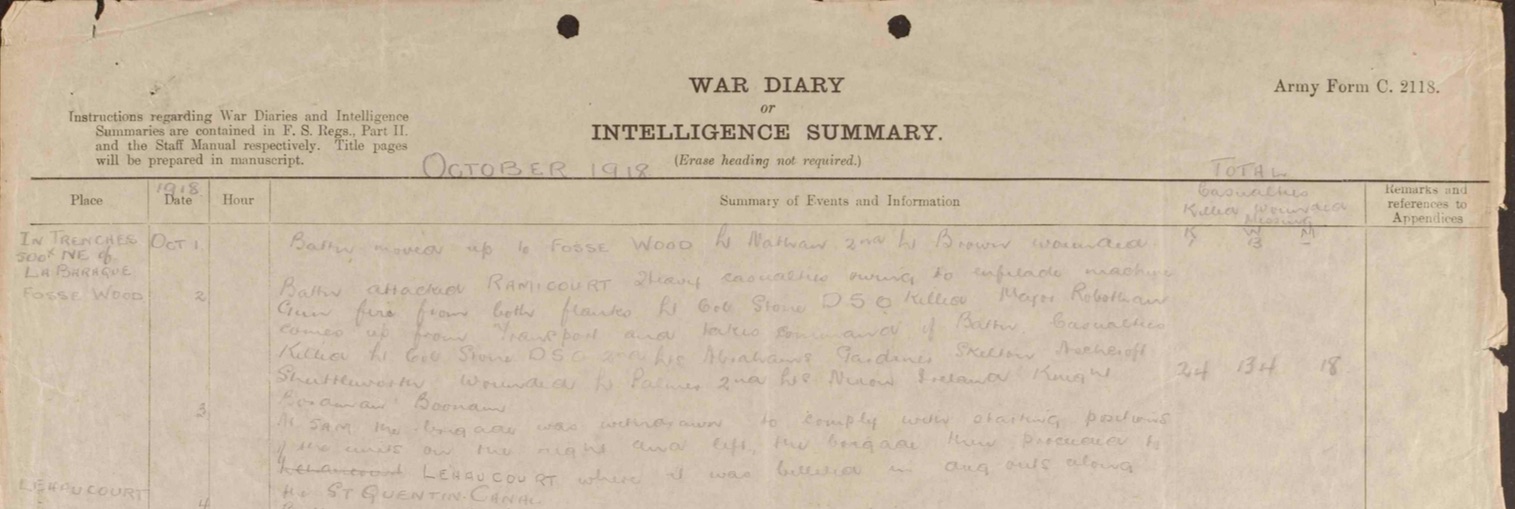 WAR DIARY
or
INTELLIGENCE SUMMARY.
(Erase heading not required.)
Army Form C. 2118.
Instructions regarding War Diaries and Intelligence
Summaries are contained in F. S. Regs., Part II.
and the Staff Manual respectively. Title pages
will be prepared in manuscript.
OCTOBER 1918
TOTAL
Casualties
Killed Wounded
Missing
K W M
Place
1918
Date
Hour
Summary of Events and Information
Remarks and
references to
Appendices
IN TRENCHES
500x NE of
LA BARAQUE
Oct 1
Battn moved up to FOSSE WOOD Lt Nathan 2nd Lt Brown wounded
FOSSE WOOD
2
Battn attacked RAMICOURT Heavy casualties owing to enfilade machine
Gun fire from both flanks Lt Col Stone DSO Killed Major Robotham
comes up from Transport and takes command of Battn. Casualties
Killed Lt Col Stone DSO 2nd Lts Abrahams Gardiner Skelton
Shuttleworth Wounded Lt Palmer 2nd Lts Nixon Ireland Knight
24 134 18
3
At 5AM the brigade was withdrawn to comply with starting positions
of the units on the right and left, the brigade then proceeded to
LEHAUCOURT where it was billeted in dug outs along
LEHAUCOURT
the ST QUENTIN CANAL
4